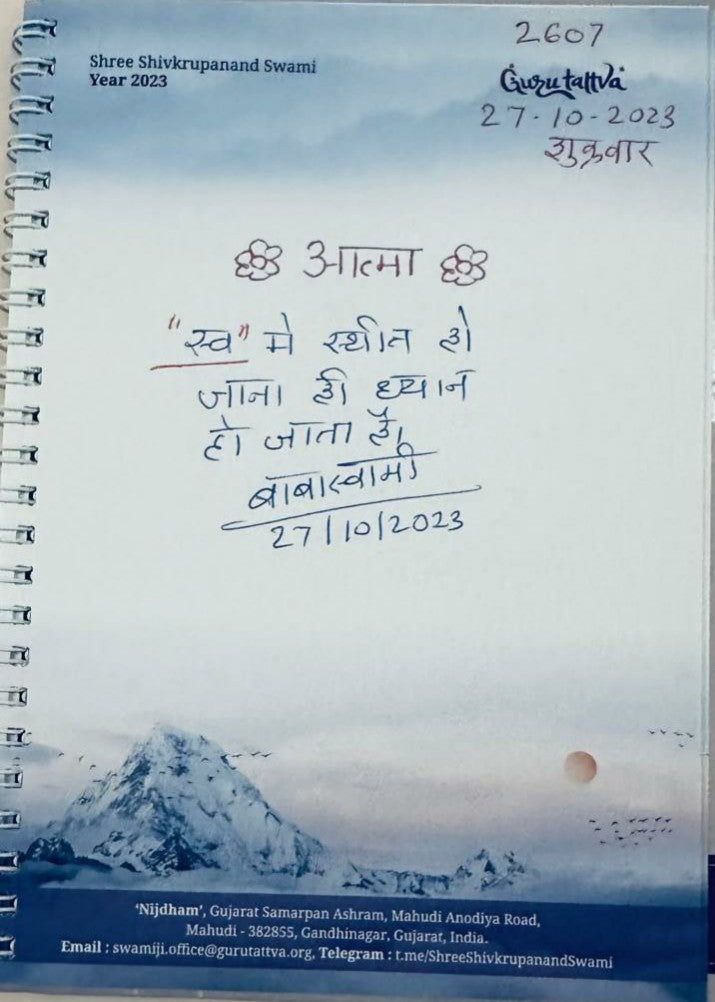 2607
Shree Shivkrupanand Swami
Year 2023
Gurutattva
27-10-2023
शुक्रवार
आत्मा
"स्व" मे स्थीत हो
जाना ही ध्यान
हो जाता है।
बाबास्वामी
27/10/2023
'Nijdham', Gujarat Samarpan Ashram, Mahudi Anodiya Road,
Mahudi - 382855, Gandhinagar, Gujarat, India.
Email : swamiji.office@gurutattva.org, Telegram : t.me/ShreeShivkrupanandSwami